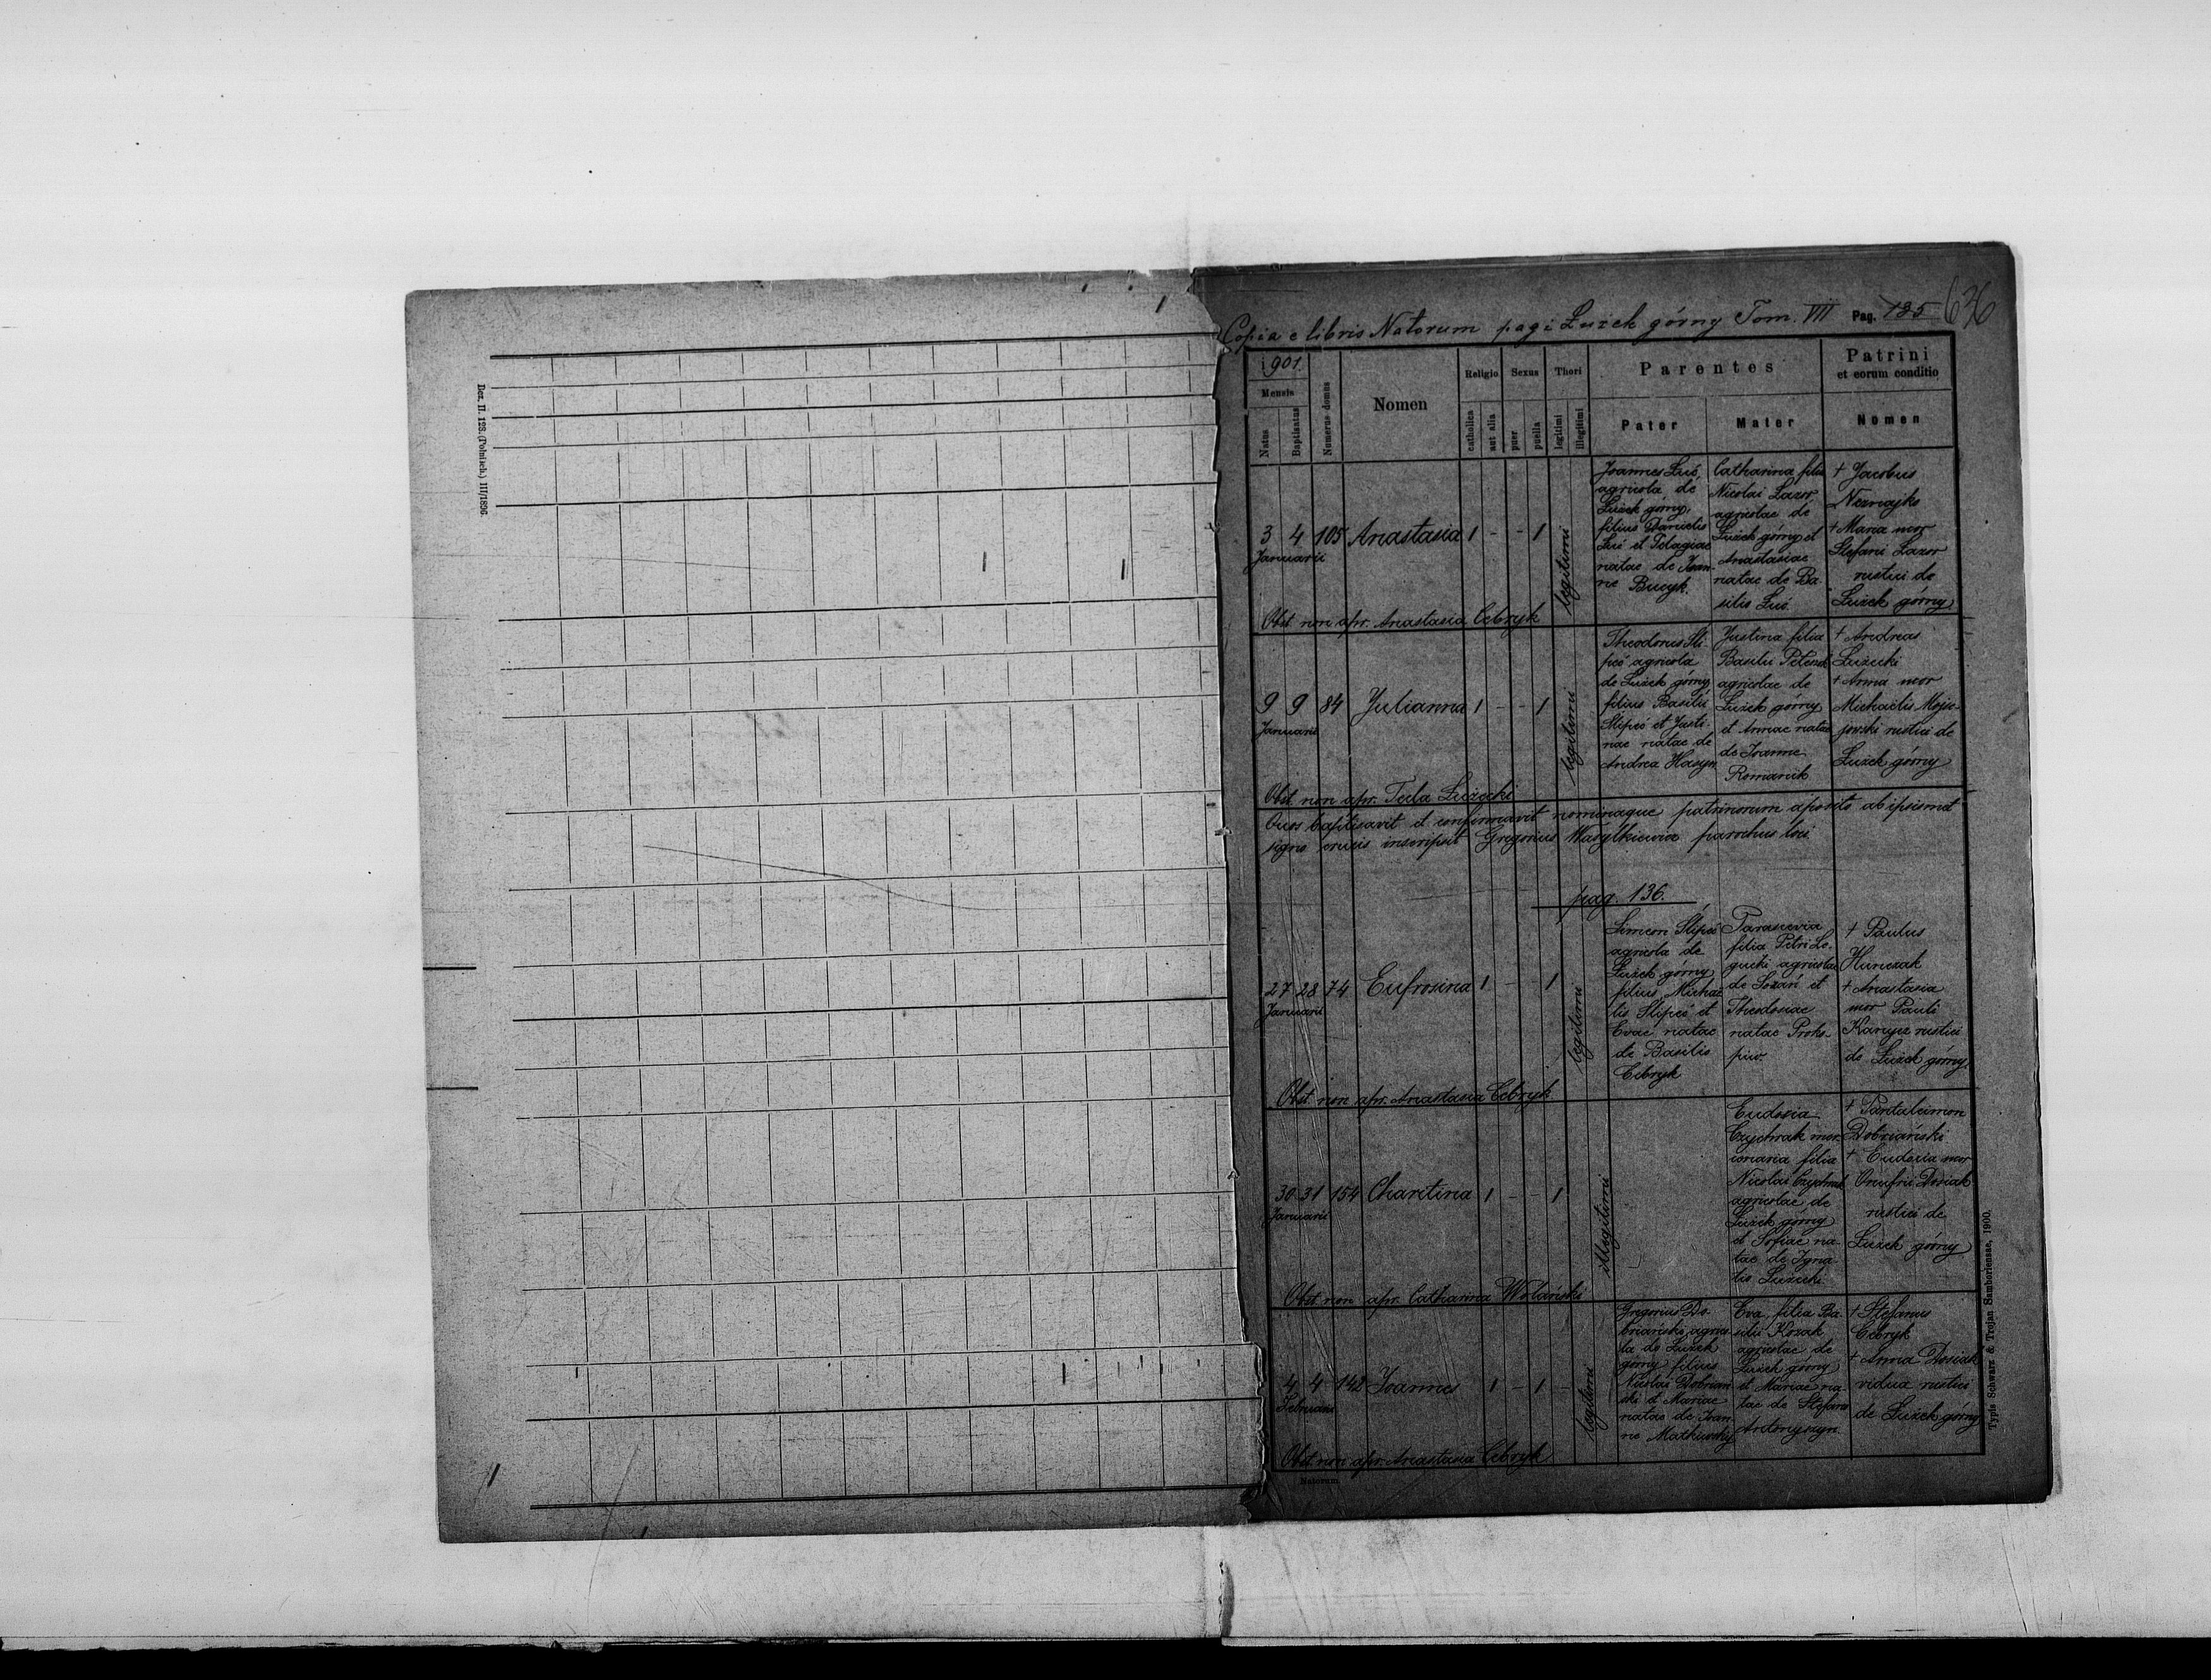 Dez. II. 123. (Polnisch.) III/1896.
Copia e libris Natorum pagi Łużek górny Tom. VII Pag. 135 636
1901
Mensis
Natus
Baptisatus
Numerus domus
Nomen
Religio
catholica
aut alia
Sexus
puer
puella
Thori
legitimi
illegitimi
Parentes
Pater
Mater
Patrini
et eorum conditio
Nomen
3 4 105 Anastasia 1 - - 1 legitimi
Januarii
Joannes Luć
agricola de
Łużek górny,
filius Danielis
Luć et Pelagiae
natae de Joan-
ne Bucyk.
Catharina filia
Nicolai Lazor
agricolae de
Łużek górny et
Anastasiae
natae de Ba-
silio Luć
† Jacobus
Neznajko
† Maria uxor
Stefani Lazor
rustici de
Łużek górny
Obst. non apr. Anastasia Cebryk
9 9 84 Julianna 1 - - 1 legitimi
Januarii
Theodorus Sli-
peć agricola
de Łużek górny
filius Basilii
Slipeć et Justi-
nae natae de
Andrea Hasyn
Justina filia
Basilii
agricolae de
Łużek górny
et Annae natae
de Joanne
Romanik
† Andreas
Łużecki
† Anna uxor
Michaelis Mojse-
jowski rustici de
Łużek górny
Obst. non apr. Tecla Łużecki
Quos baptisavit et confirmavit nominaque patrinorum aposito ab ipsismet
signo crucis inscripsit Gregorius Wasylkiewicz parochus loci.
pag. 136.
27 28 74 Eufrosina 1 - - 1 legitimi
Januarii
Simeon Slipeć
agricola de
Łużek górny
filius Michae-
lis Slipeć et
Evae natae
de Basilio
Cebryk
Parascevia
filia Petri Lo-
gucki agricolae
de Sozań et
Theodosiae
natae Proko-
piw.
† Paulus
Hunczak
† Anastasia
uxor Pauli
Kanycz rustici
de Łużek górny
Obst. non apr. Anastasia Cebryk
30 31 154 Charitina 1 - - 1 illegitimi
Januarii
Eudosia
Czychrak mer-
cenaria filia
Nicolai Czychrak
agricolae de
Łużek górny
et Sofiae na-
tae de Igna-
tio Łużecki
† Pantaleimon
Dobriański
† Eudocia uxor
Onufrii Dosiak
rustici de
Łużek górny
Obst. non apr. Catharina Wolański
4 4 142 Joannes 1 - 1 - legitimi
Februarii
Gregorius Do-
briański agrico-
la de Łużek
górny filius
Nicolai Dobrian-
ski et Mariae
natae de Joan-
ne Matkowsky
Eva filia Ba-
silii Kozak
agricolae de
Łużek górny
et Mariae na-
tae de Stefano
Antonyszyn
† Stefanus
Cebryk
† Anna Dosiak
vidua rustici
de Łużek górny
Obst. non apr. Anastasia Cebryk
Natorum
Typis Schwarz & Trojan Samboriensae, 1900.